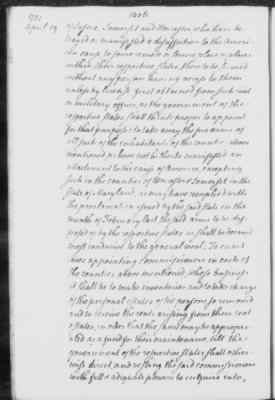 1777
1406.
April 19. of Sussex, Somerset and Worcester, who have be
trayed or manifested a disaffection to the Ameri
can cause to some remote or secure place or places
within their respective states, there to be secured
without any person having access to them
unless by licence first obtained from such civil
or military officer, as the government of the
respective states shall think proper to appoint
for that purpose: to take away the fire arms of
all such of the inhabitants of the counties above
mentioned as have not hitherto manifested an
attachment to the cause of America, excepting
such in the counties of Worcester & Somerset in the
state of Maryland, as may have complied with
the proclamation issued by the said state in the
month of February last the said arms to be dis
posed of by the respective states as shall be deemed
most conducive to the general weal: To excel
lence appointing commissioners in each of
the counties above mentioned, whose business
it shall be to make inventories and take charge
of the personal estates of the persons so removed
and to receive the rents arising from their real
estates, in order that the same may be appropri
ated as a fund for their maintenance, till the
government of the respective states, shall other
wise direct, and vesting the said commissioners
with full & adequate powers to enquire into,